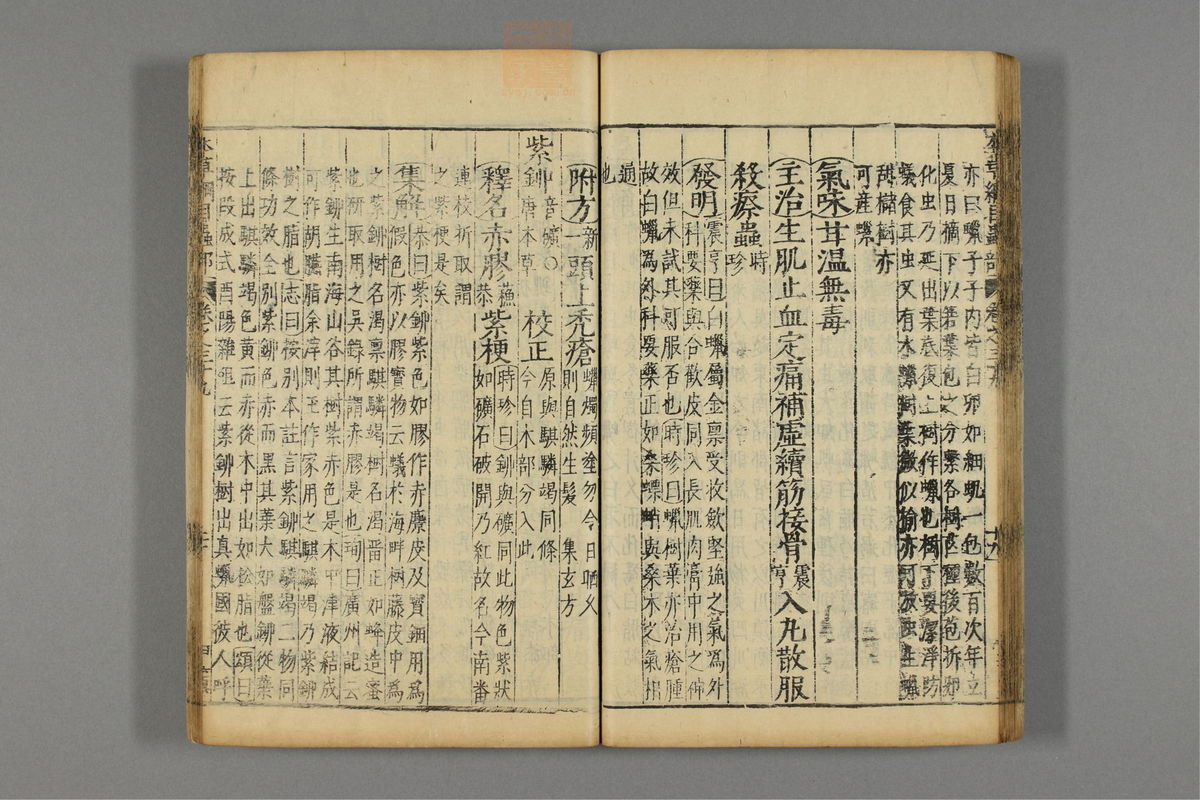 本草綱目蟲部 卷之三十九
亦曰蠟子子內皆白卵如細蟣一包數百次年立
夏日摘下以箬葉包之分繫各樹芒種後苞拆卵
化虫乃延出葉底復上樹作蠟也樹下要潔淨防
蟻食其虫又有水蠟樹葉微似榆亦可放虫生蠟
甜櫧樹亦
可產蠟
氣味甘溫無毒
主治生肌止血定痛補虛續筋接骨震亨入丸散服
殺瘵蟲時珍
發明震亨曰白蠟屬金稟受收斂堅強之氣為外
科要藥與合歡皮同入長肌肉膏中用之神
效但未試其可服否也時珍曰蠟樹葉亦治瘡腫
故白蠟為外科要藥正如桑螵蛸與桑木之氣相
通
也
附方新一頭上禿瘡蠟燭頻塗勿令日晒久
則自然生髮 集玄方
紫鉚音礦○唐本草 校正原與騏驎竭同條
今自木部分入此
釋名赤膠蘇恭紫梗時珍曰鉚與礦同此物色紫狀
如礦石破開乃紅故名今南番
連枝折取謂
之紫梗是矣
集解恭曰紫鉚紫色如膠作赤麖皮及寶鈿用為
假色亦以膠寶物云蟻於海畔樹藤皮中為
之紫鉚樹名渴稟騏驎竭樹名渴留正如蜂造蜜
也研取用之吳錄所謂赤膠是也珣曰廣州記云
紫鉚生南海山谷其樹紫赤色是木中津液結成
可作胡臙脂余滓則玉作家用之騏驎竭乃紫鉚
樹之脂也志曰按別本註言紫鉚騏驎竭二物同
條功效全別紫鉚色赤而黑其葉大如盤鉚從葉
上出騏驎竭色黃而赤從木中出如松脂也頌曰
按段成式酉陽雜俎云紫鉚樹出真臘國彼人呼
本草綱目蟲部 卷之三十九